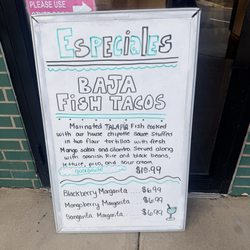 PLEASE USE
Especiales
BAJA
FISH TACOS
Marinated TALAPIA Fish cooked
with our house chipotle sauce stuffed
in two flour tortillas with fresh
Mango salsa and cilantro. Served along
with spanish Rice and black beans,
lettuce, pico, and sour cream.
$10.99
Blackberry Margarita $6.99
Mangoberry Margarita $6.99
Sangarita Margarita $6.99